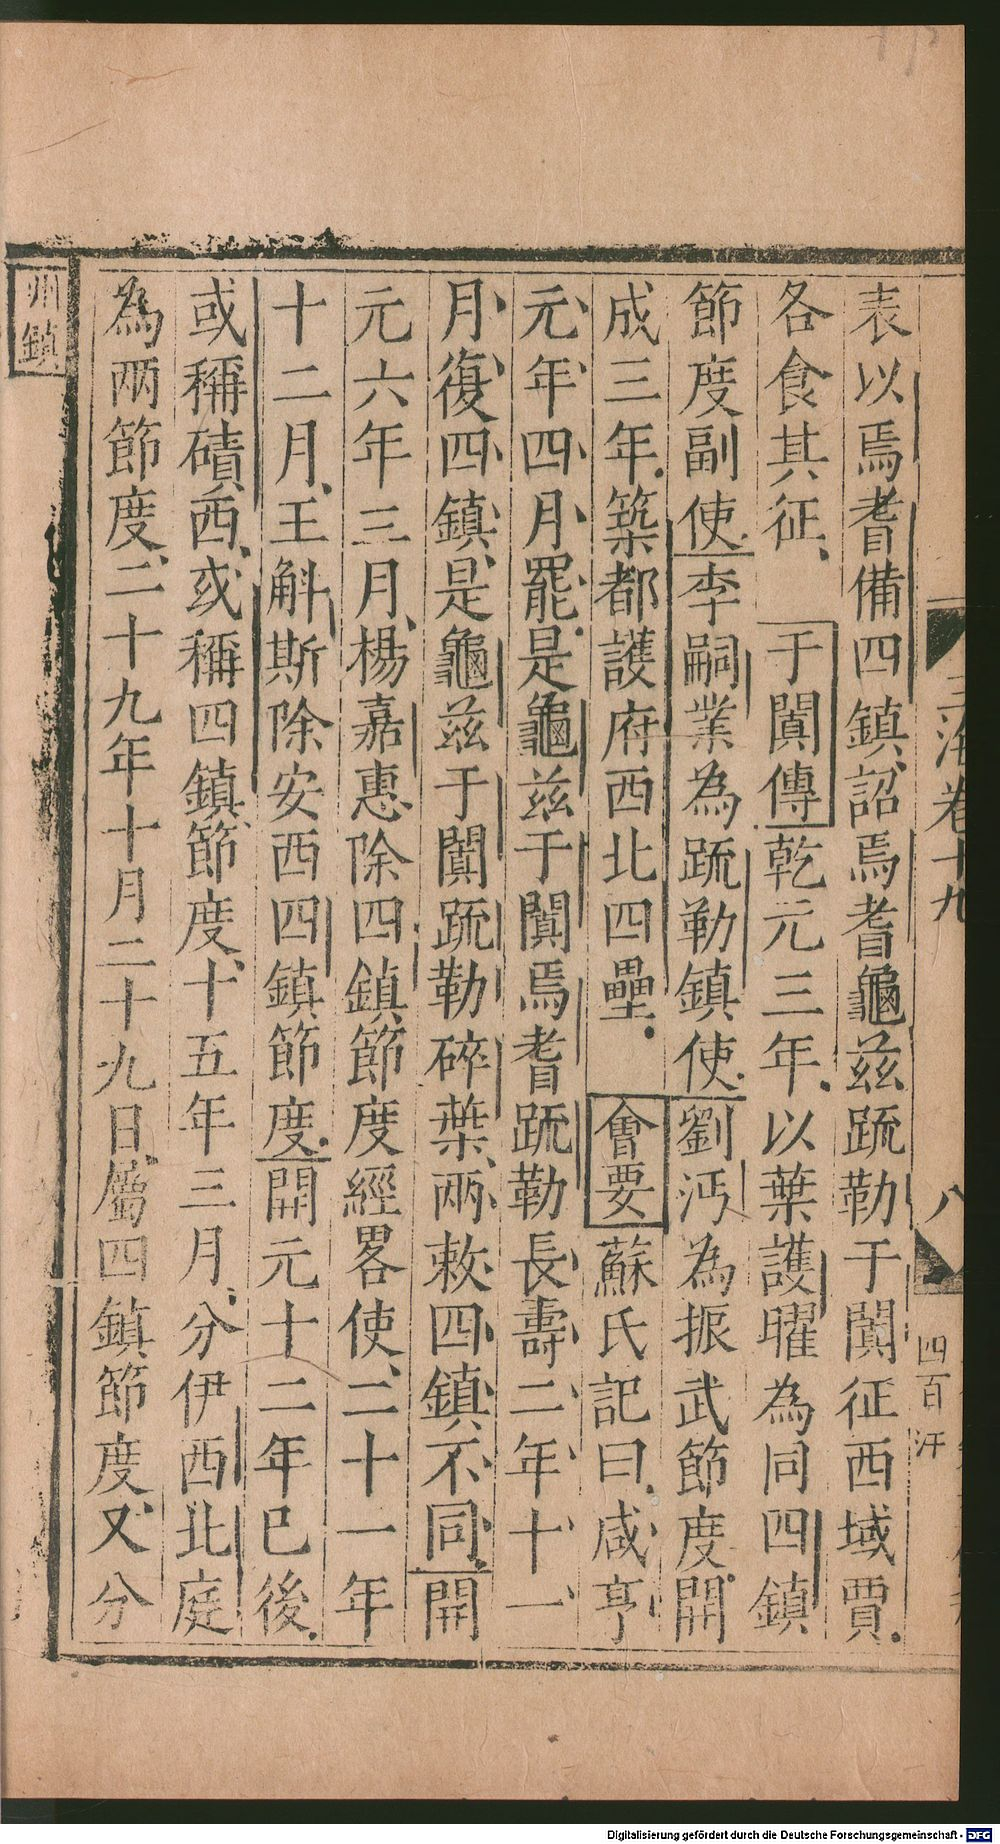 表以焉耆備四鎮詔焉耆龜茲䟽勒于闐征西域賈
各食其征于闐傳乾元三年以葉護曜為同四鎮
節度副使李嗣業為䟽勒鎮使劉沔為振武節度開
成三年築都護府西北四壘會要蘇氏記曰咸亨
元年四月罷是龜茲于闐焉耆䟽勒長壽二年十一
月復四鎮是龜茲于闐䟽勒碎葉兩敕四鎮不同開
元六年三月楊嘉惠除四鎮節度經畧使二十一年
十二月王斛斯除安西四鎮節度開元十二年已後
或稱磧西或稱四鎮節度十五年三月分伊西北庭
為兩節度二十九年十月二十九日屬四鎮節度又分
州鎮
玉海卷十九
八
四百
Digitalisierung gefördert durch die Deutsche Forschungsgemeinschaft - DFG